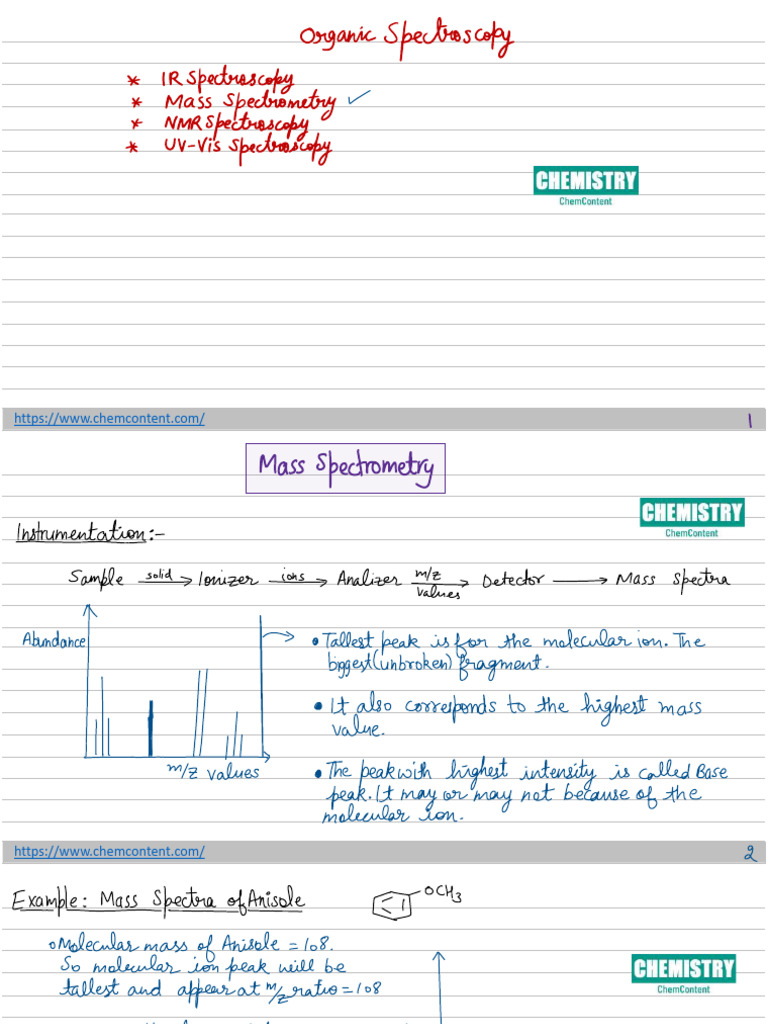 Organic Spectroscopy
* IR Spectroscopy
* Mass Spectrometry ✓
* NMR Spectroscopy
* UV-Vis Spectroscopy
CHEMISTRY
ChemContent
https://www.chemcontent.com/
1
Mass Spectrometry
CHEMISTRY
ChemContent
Instrumentation:-
Sample solid→ Ionizer ions→ Analizer m/z values→ Detector → Mass Spectra
Abundance
m/z values
• Tallest peak is for the molecular ion. The
biggest (unbroken) fragment.
• It also corresponds to the highest mass
value.
• The peak with highest intensity is called Base
peak. It may or may not because of the
molecular ion.
https://www.chemcontent.com/
2
Example: Mass Spectra of Anisole
OCH3
Molecular mass of Anisole = 108.
So molecular ion peak will be
tallest and appear at m/z ratio = 108
CHEMISTRY
ChemContent